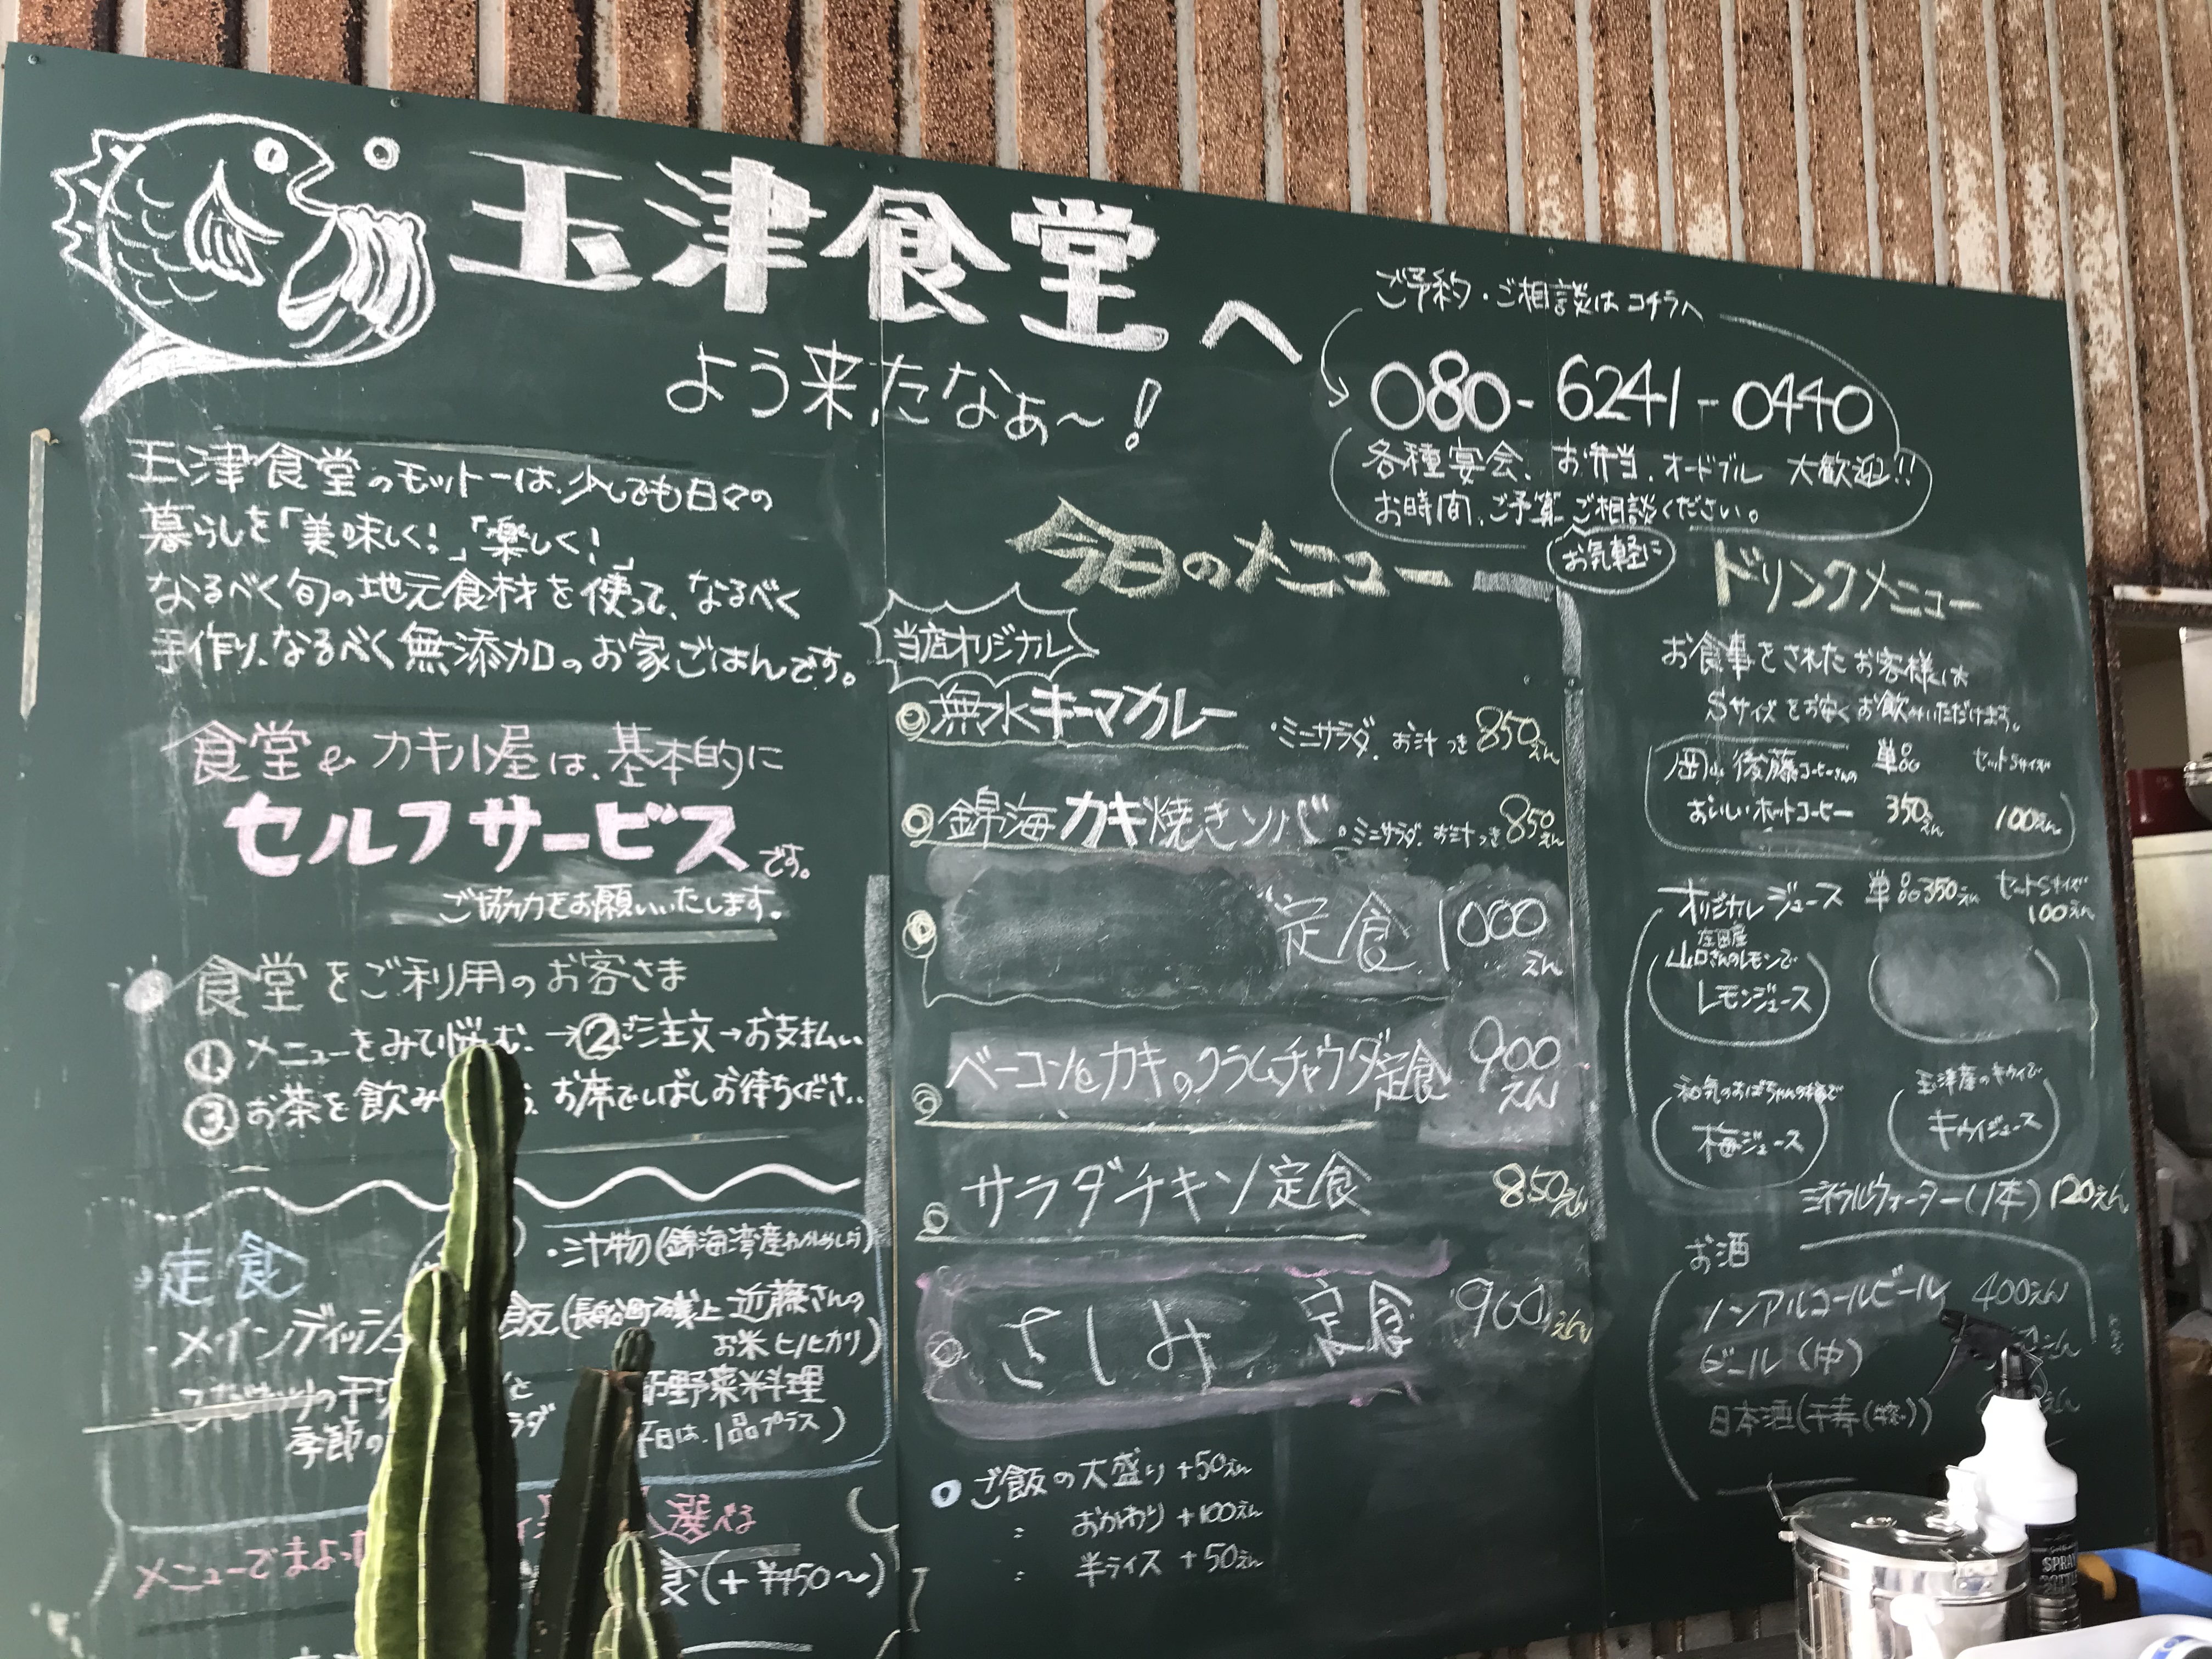 玉津食堂へ
よう来たなぁ〜!
ご予約・ご相談はコチラへ
080-6241-0440
各種宴会、お弁当、オードブル 大歓迎!!
お時間、ご予算ご相談ください。
お気軽に
玉津食堂のモットーは、少しでも日々の
暮らしを「美味しく!」「楽しく!」
なるべく旬の地元食材を使って、なるべく
手作り、なるべく無添加のお家ごはんです。
食堂&カキ小屋は、基本的に
セルフサービスです。
ご協力をお願いいたします。
食堂をご利用のお客さま
①メニューをみて悩む、→②ご注文→お支払い
③お茶を飲み お席でしばしお待ちくださ
定食
・汁物(錦海湾産
・メインディッシュ
飯(長船町磯上 近藤さんの
お米ヒノヒカリ)
季節の
野菜料理
平日は、1品プラス)
メニューでまよっ
選べる
食(+¥450〜)
今日のメニュー
当店オリジナル
◎無水キーマカレー ・ミニサラダ、お汁つき 850えん
◎錦海カキ焼きソバ ・ミニサラダ、お汁つき 850えん
定食 1000えん
ベーコンとカキのクラムチャウダ定食 900えん
サラダチキン定食 850えん
さしみ 定食 900えん
ご飯の大盛り +50えん
: おかわり +100えん
: 半ライス +50えん
ドリンクメニュー
お食事をされたお客様は
Sサイズをお安くお飲みいただけます。
岡山 後藤コーヒーさんの 単品 セットSサイズ
おいしいホットコーヒー 350えん 100えん
オリジナルジュース 単品350えん セットSサイズ
100えん
山口さんのレモンで
レモンジュース
和気のおばちゃんの梅で
梅ジュース
玉津産のキウイで
キウイジュース
ミネラルウォーター(1本) 120えん
お酒
ノンアルコールビール 400えん
ビール(中)
日本酒(千寿
SPRAY
BOTTLE